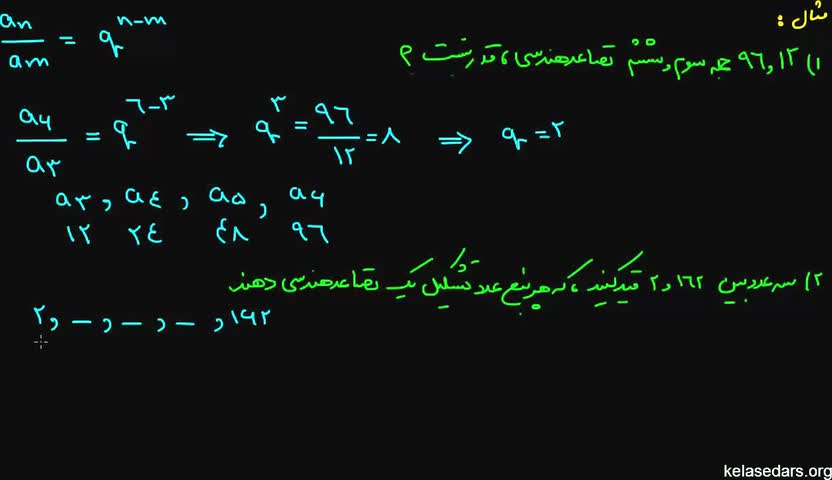 مثال :
aₙ/aₘ = qⁿ⁻ᵐ
۱) ۱۲ و ۹۶ جمله سوم و ششم تصاعد هندسی ، قدرنسبت ؟
a۶/a۳ = q^۶-۳ ⟹ q^۳ = ۹۶/۱۲ = ۸ ⟹ q = ۲
a۳ , a٤ , a۵ , a۶
۱۲ ۲٤ ٤۸ ۹۶
۲) سه عدد بین ۱۶۲ و ۲ قید کنید ، که هر پنج عدد تشکیل یک تصاعد هندسی دهند
۲ , — , — , — , ۱۶۲
kelasedars.org